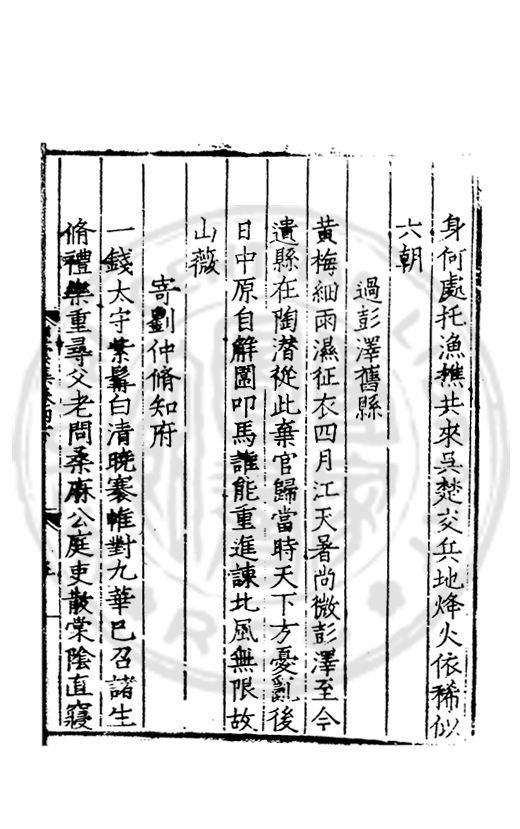 身何處托漁樵共來吳楚交兵地烽火依稀似
六朝
過彭澤舊縣
黃梅細雨濕征衣四月江天暑尚微彭澤至今
遺縣在陶潛從此棄官歸當時天下方憂亂後
日中原自解圍叩馬誰能重進諫北風無限故
山薇
寄劉仲脩知府
一錢太守紫髯白清曉褰帷對九華已召諸生
脩禮樂重尋父老問桑麻公庭吏散棠陰直寢